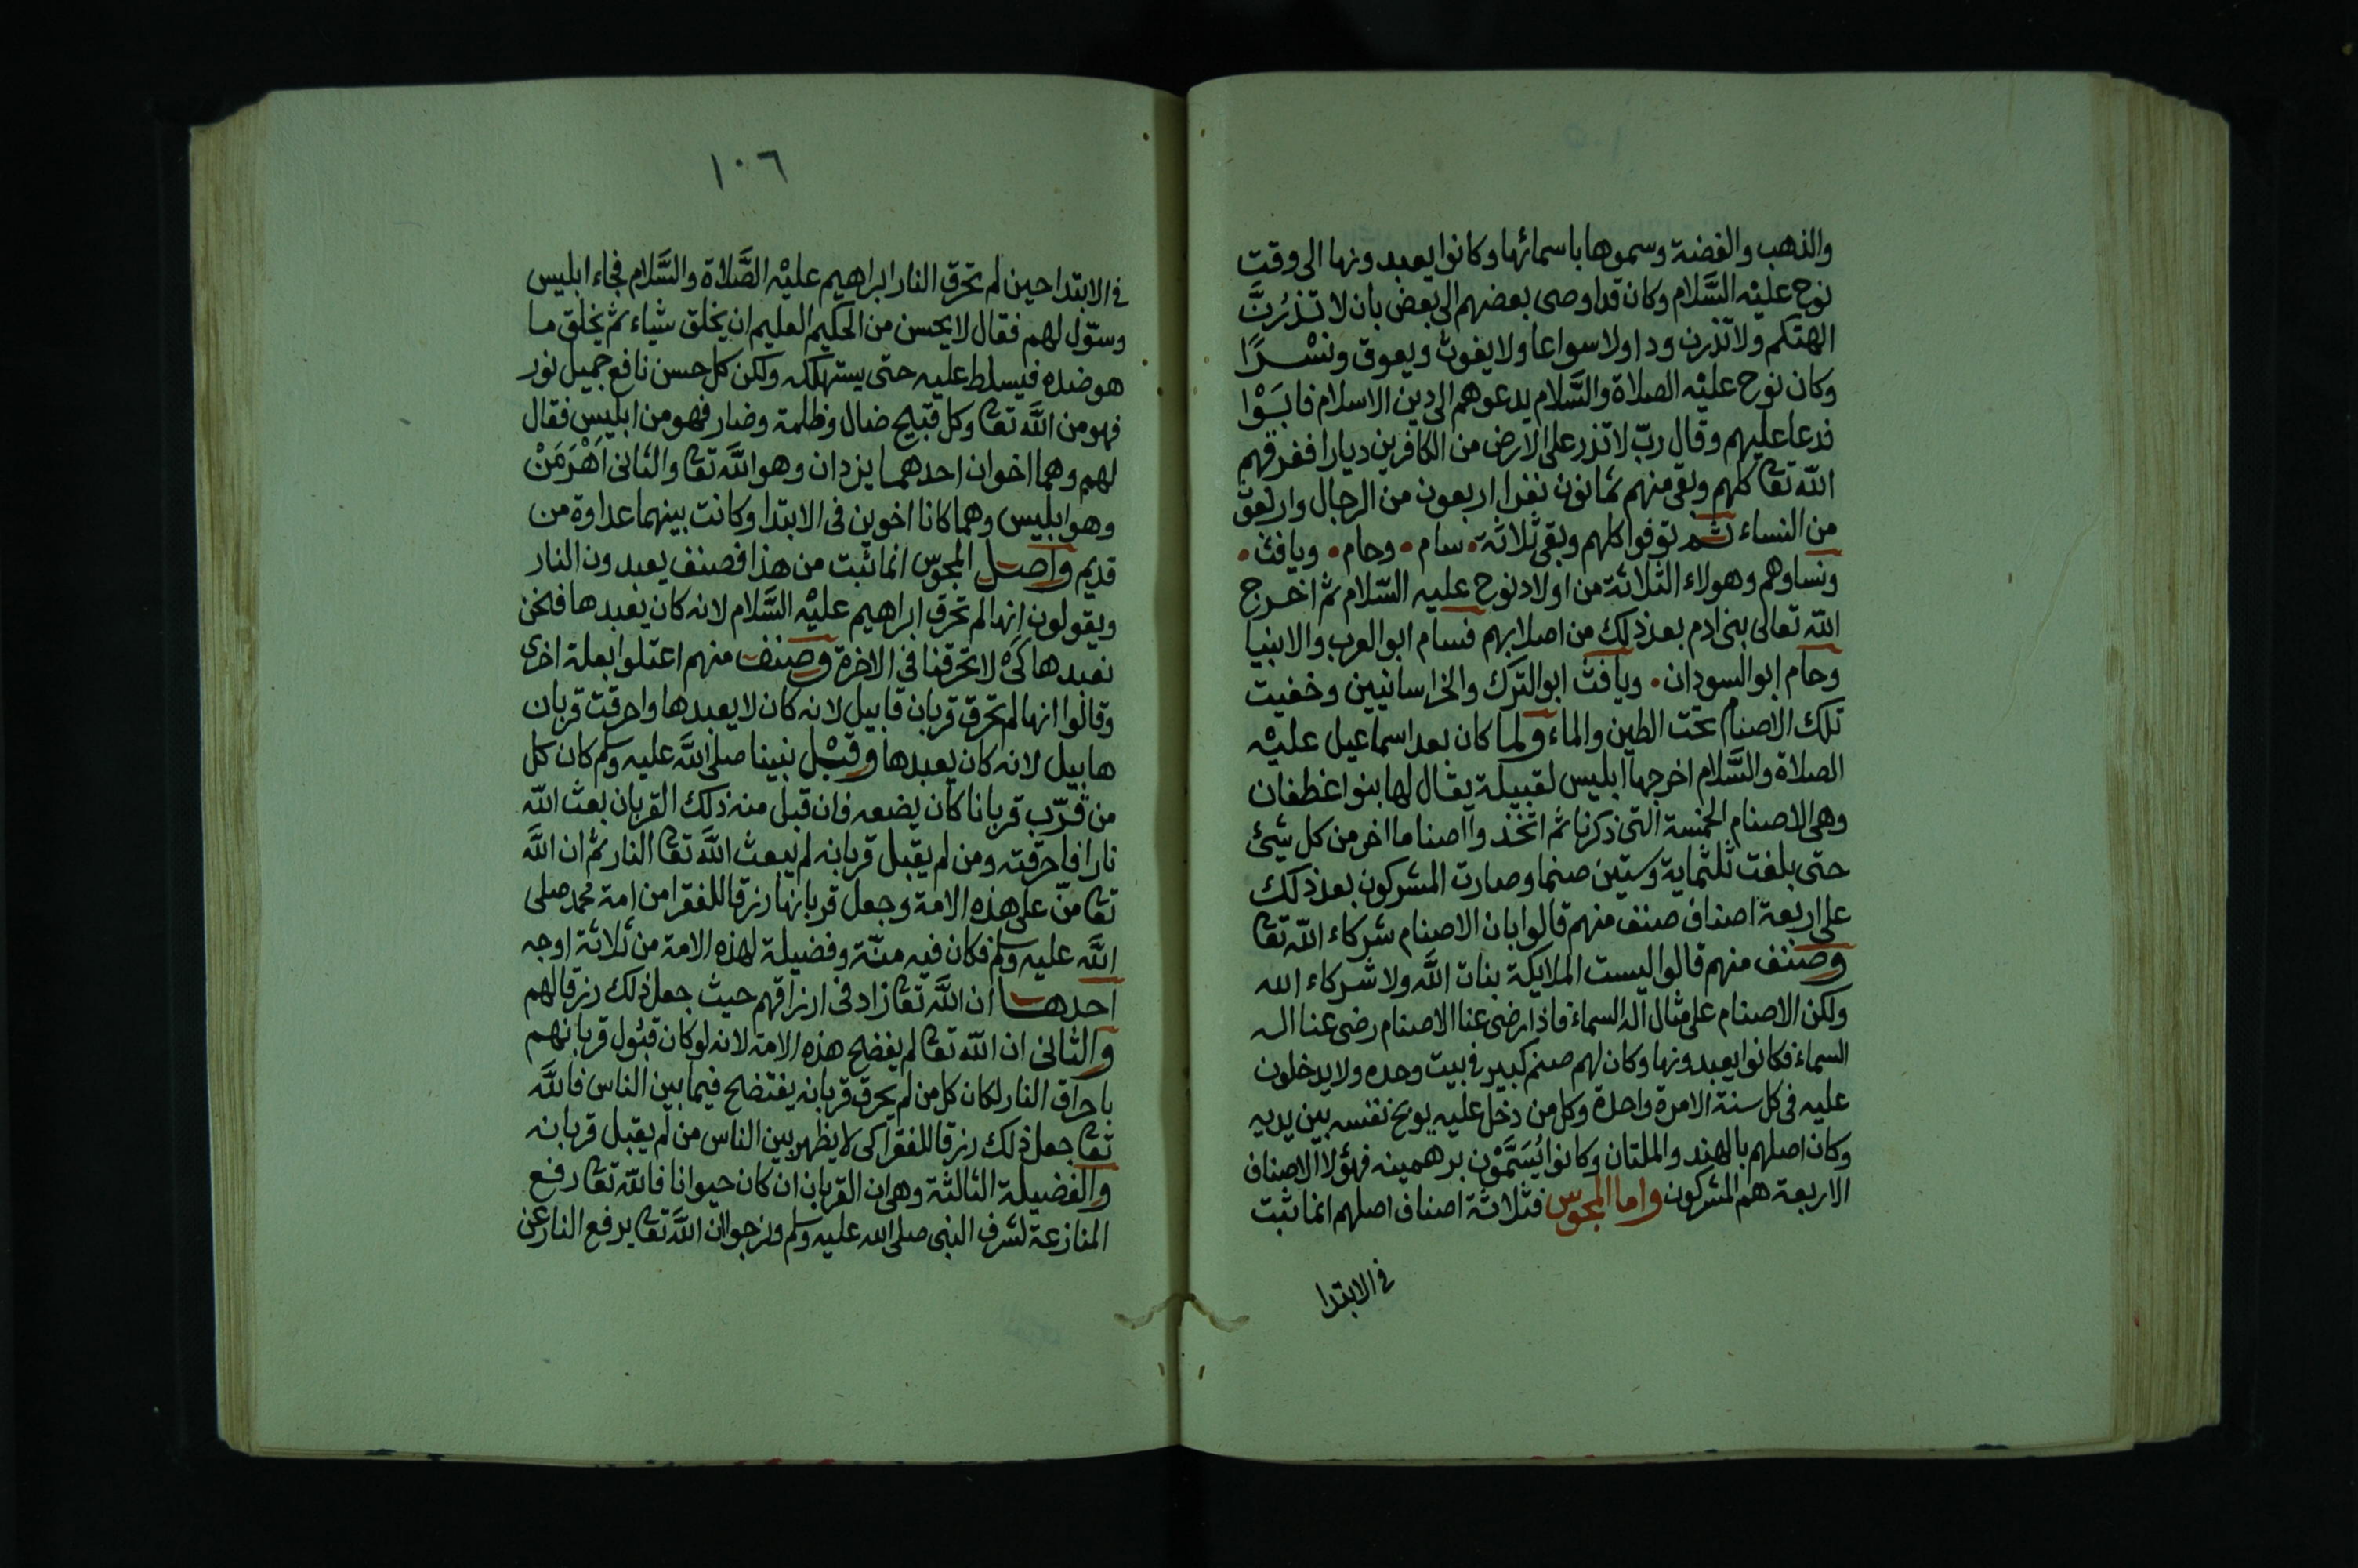 والذهب والفضة وسموها باسمائها وكانوا يعبدونها الى وقت
نوح عليه السَّلام وكان قد اوصى بعضهم الى بعض بان لا تذرُنَّ
الهتكم ولا تذرن ودا ولا سواعا ولا يغوث ويعوق ونسْرًا
وكان نوح عليْه الصلاة والسَّلام يدعوهم الى دين الاسلام فابَوْا
فدعا عليهم وقال ربّ لا تذر على الارض من الكافرين ديارا فغرقهم
اللّه تعا كلهم وبقى منهم ثمانون نفرا اربعون من الرجال واربعون
من النساء ثم توفوا كلهم وبقى ثلاثة • سام • وحام • ويافث •
ونساوهم وهولاء الثلاثة من اولاد نوح عليه السّلام ثم اخرج
اللّه تعالى بنى ادم بعد ذلك من اصلابهم فسام ابو العرب والانبيا
وحام ابو السودان • ويافث ابو الترك والخراسانيين وخفيت
تلك الاصنام تحت الطين والماء ولما كان بعد اسماعيل عليْه
الصلاة والسَّلام اخرجها ابليس لقبيلة يقال لها بنوا غطفان
وهى الاصنام الخمسة التى ذكرنا ثم اتخذوا اصناما اخر من كل شيئ
حتى بلغت ثلثماية وستين صنما وصارت المشركون بعد ذلك
على اربعة اصناف صنف منهم قالوا بان الاصنام شركاء اللّه تعا
وصنف منهم قالوا ليست الملايكة بنات اللَّه ولا شركاء الله
ولكن الاصنام على مثال اله السماء فاذا رضى عنا الاصنام رضى عنا اله
السماء فكانوا يعبدونها وكان لهم صنم كبير فى بيت وحده ولا يدخلون
عليه فى كل سنة الا مرة واحدة وكل من دخل عليه يوبخ نفسه بين يديه
وكان اصلهم بالهند والملتان وكانوا يُسَمَّوْن برهمينه فهؤلا الاصناف
الاربعة هم المشركون واما المجوس فثلاثة اصناف اصلهم انما ثبت
فى الابتدا
١٠٦
فى الابتدا حين لم تحرق النار ابراهيم عليْه الصَّلاة والسَّلام فجاء ابليس
وسوّل لهم فقال لا يحسن من الحكيم العليم ان يخلق شياء ثم يخلق ما
هو ضده فيسلط عليه حتى يستهلكه ولكن كل حسن نافع جميل نور
فهو من اللَّه تعا وكل قبيح ضال وظلمة وضار فهو من ابليس فقال
لهم وهما اخوان احدهما يزدان وهو اللَّه تعا والثانى اَهْرَمَنْ
وهو ابليس وهما كانا اخوين فى الابتدا وكانت بينهما عداوة من
قديم واصل المجوس انما ثبت من هذا فصنف يعبدون النار
ويقولون انها لم تحرق ابراهيم عليْه السَّلام لانه كان يعبدها فنحن
نعبدها كى لا تحرقنا فى الاخرة وصنف منهم اعتلوا بعلة اخرى
وقالوا انها لم تحرق قربان قابيل لانه كان لا يعبدها واحرقت قربان
هابيل لانه كان يعبدها وقبْل نبينا صلى اللَّه عليه وسلم كان كل
من قرّب قربانا كان يضعه فان قبل منه ذلك القربان بعث اللّه
نارا فاحرقته ومن لم يقبل قربانه لم يبعث اللَّه تعا النار ثم ان اللَّه
تعا منّ على هذه الامة وجعل قربانها رزقا للفقرا من امة محمد صلى
اللَّه عليه وسلم فكان فيه منّة وفضيلة لهذه الامة من ثلاثة اوجه
احدها ان اللَّه تعا زاد فى ارزاقهم حيث جعل ذلك رزقا لهم
والثانى ان اللّه تعا لم يفضح هذه الامة لانه لو كان قبُول قربانهم
باحراق النار لكان كل من لم يحرق قربانه يفتضح فيما بين الناس فاللَّه
تعا جعل ذلك رزقا للفقرا كى لا يظهر بين الناس من لم يقبل قربانه
والفضيلة الثالثة وهى ان القربان ان كان حيوانا فاللّه تعا رفع
المنازعة لشرف النبى صلى الله عليه وسلم ونرجوا ان اللَّه تعا يرفع النار عن